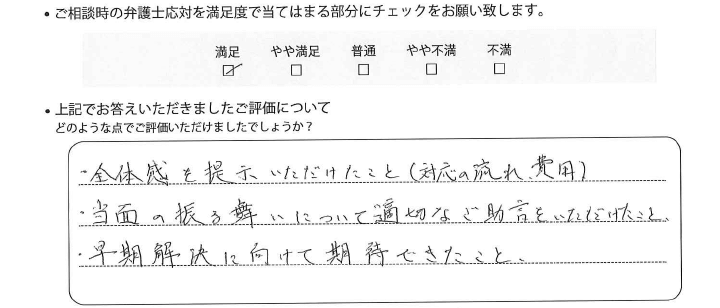 • ご相談時の弁護士応対を満足度で当てはまる部分にチェックをお願い致します。
満足 やや満足 普通 やや不満 不満
☑ □ □ □ □
• 上記でお答えいただきましたご評価について
どのような点でご評価いただけましたでしょうか？
・全体感を提示いただけたこと（対応の流れ、費用）
・当面の振る舞いについて適切なご助言をいただけたこと、
・早期解決に向けて期待できたこと、